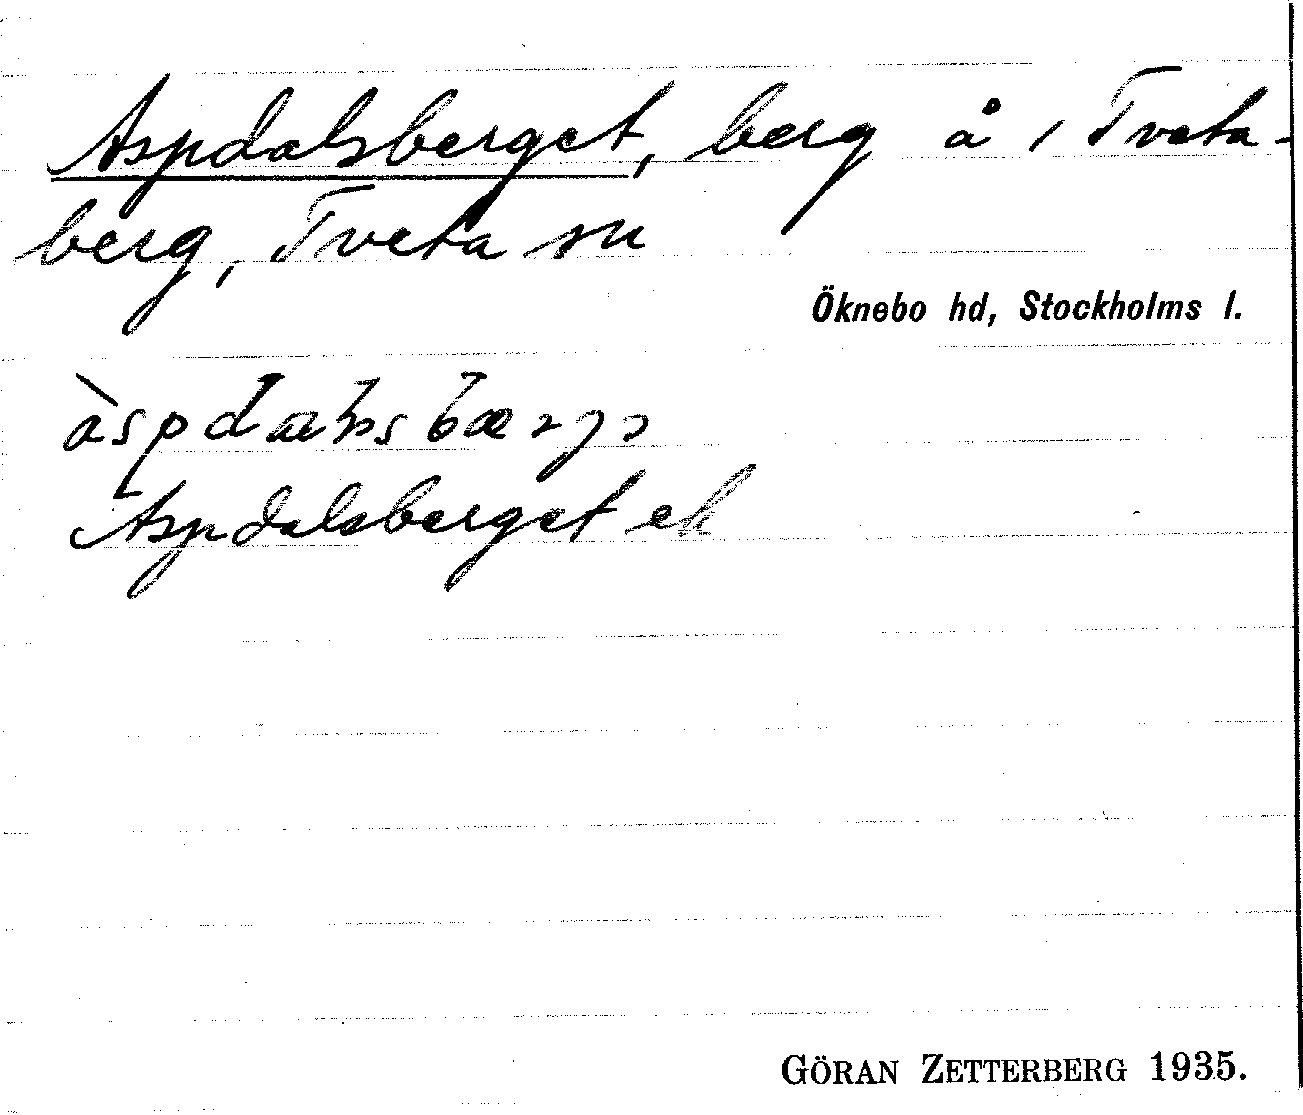 Aspdalsberget, berg å / Tveta-
berg, Tveta sn
Öknebo hd, Stockholms l.
Aspdalsberget ek
GÖRAN ZETTERBERG 1935.